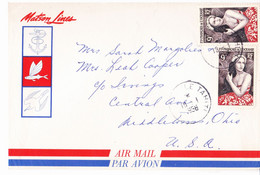 Matson Lines
Mrs Sarah Margolies
Mrs. Leah Cooper
c/o Livings
Central Ave
Middletown, Ohio
U.S.A.
TAHITI
AIR MAIL
PAR AVION